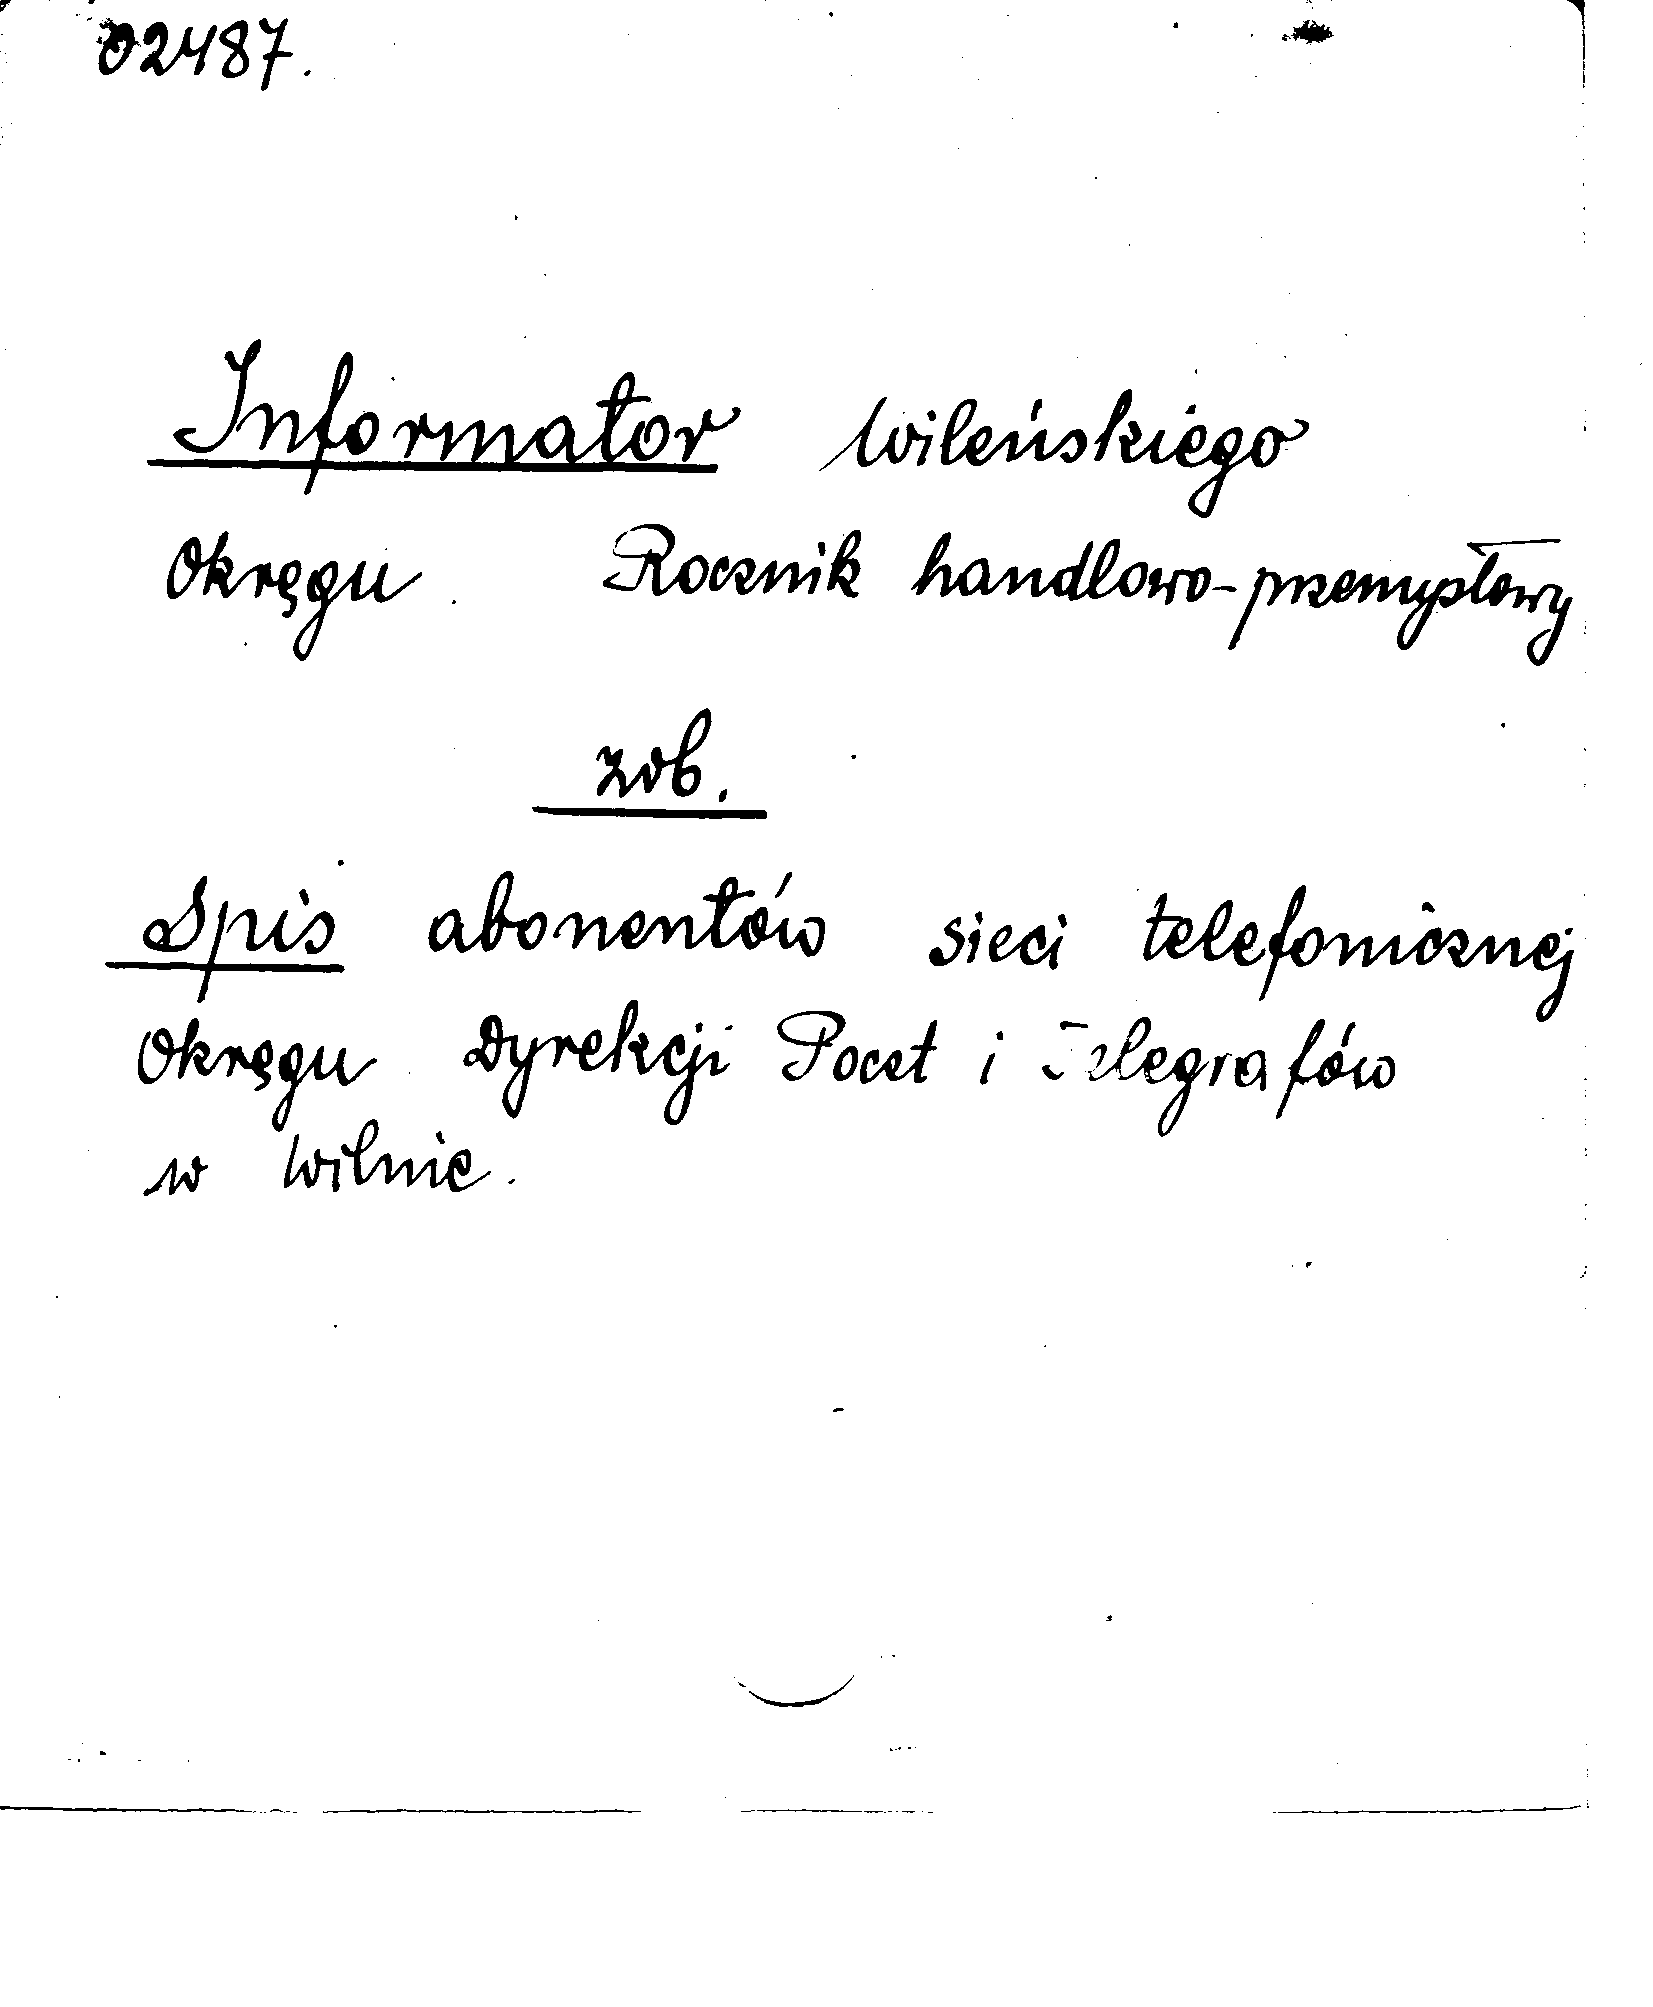 02487.
Informator Wileńskiego
Okręgu. Rocznik handlowo-przemysłowy
zob.
Spis abonentów sieci telefonicznej
Okręgu Dyrekcji Poczt i Telegrafów
w Wilnie.